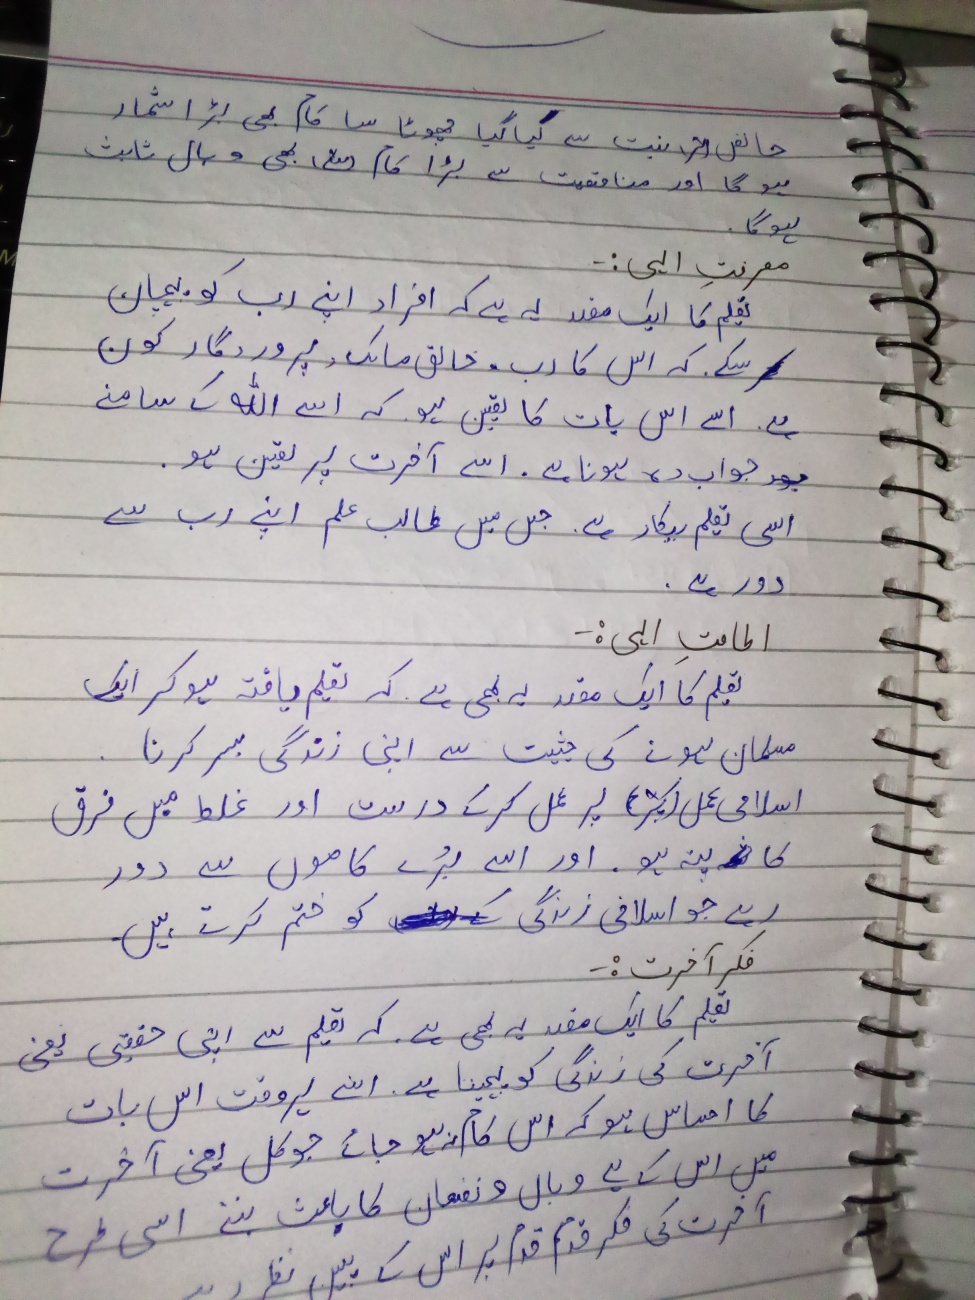 خالص نیت سے کیا گیا چھوٹا سا کام بھی بڑا شمار
ہو گا اور منافقت سے بڑا کام بھی وبال ثابت
ہوگا.
معرفتِ الہی:-
تعلیم کا ایک مقصد یہ ہے کہ افراد اپنے رب کو پہچان
سکے. کہ اس کا رب. خالق مالک، پروردگار کون
ہے. اسے اس بات کا یقین ہو. کہ اسے اللہ کے سامنے
جواب دہ ہونا ہے. اسے آخرت پر یقین ہو.
اسی تعلیم بیکار ہے. جس میں طالب علم اپنے رب سے
دور ہے.
اطاعتِ الہی:-
تعلیم کا ایک مقصد یہ بھی ہے. کہ تعلیم یافتہ ہو کر ایک
مسلمان ہونے کی حثیت سے اپنی زندگی بسر کرنا.
اسلامی عمل پر عمل کرکے درست اور غلط میں فرق
کا پتہ ہو. اور اسے بُرے کاموں سے دور
رہے جو اسلامی زندگی کو ختم کرتے ہیں.
فکر آخرت:-
تعلیم کا ایک مقصد یہ بھی ہے. کہ تعلیم سے اپنی حقیقی یعنی
آخرت کی زندگی کو ہے. اسے ہر وقت اس بات
کا احساس ہو کہ اس کام نہ ہو جائے جو کل یعنی آخرت
میں اس کے لیے وبال و نقصان کا باعث بنے اسی طرح
آخرت کی فکر قدم قدم پر اس کے پیش نظر